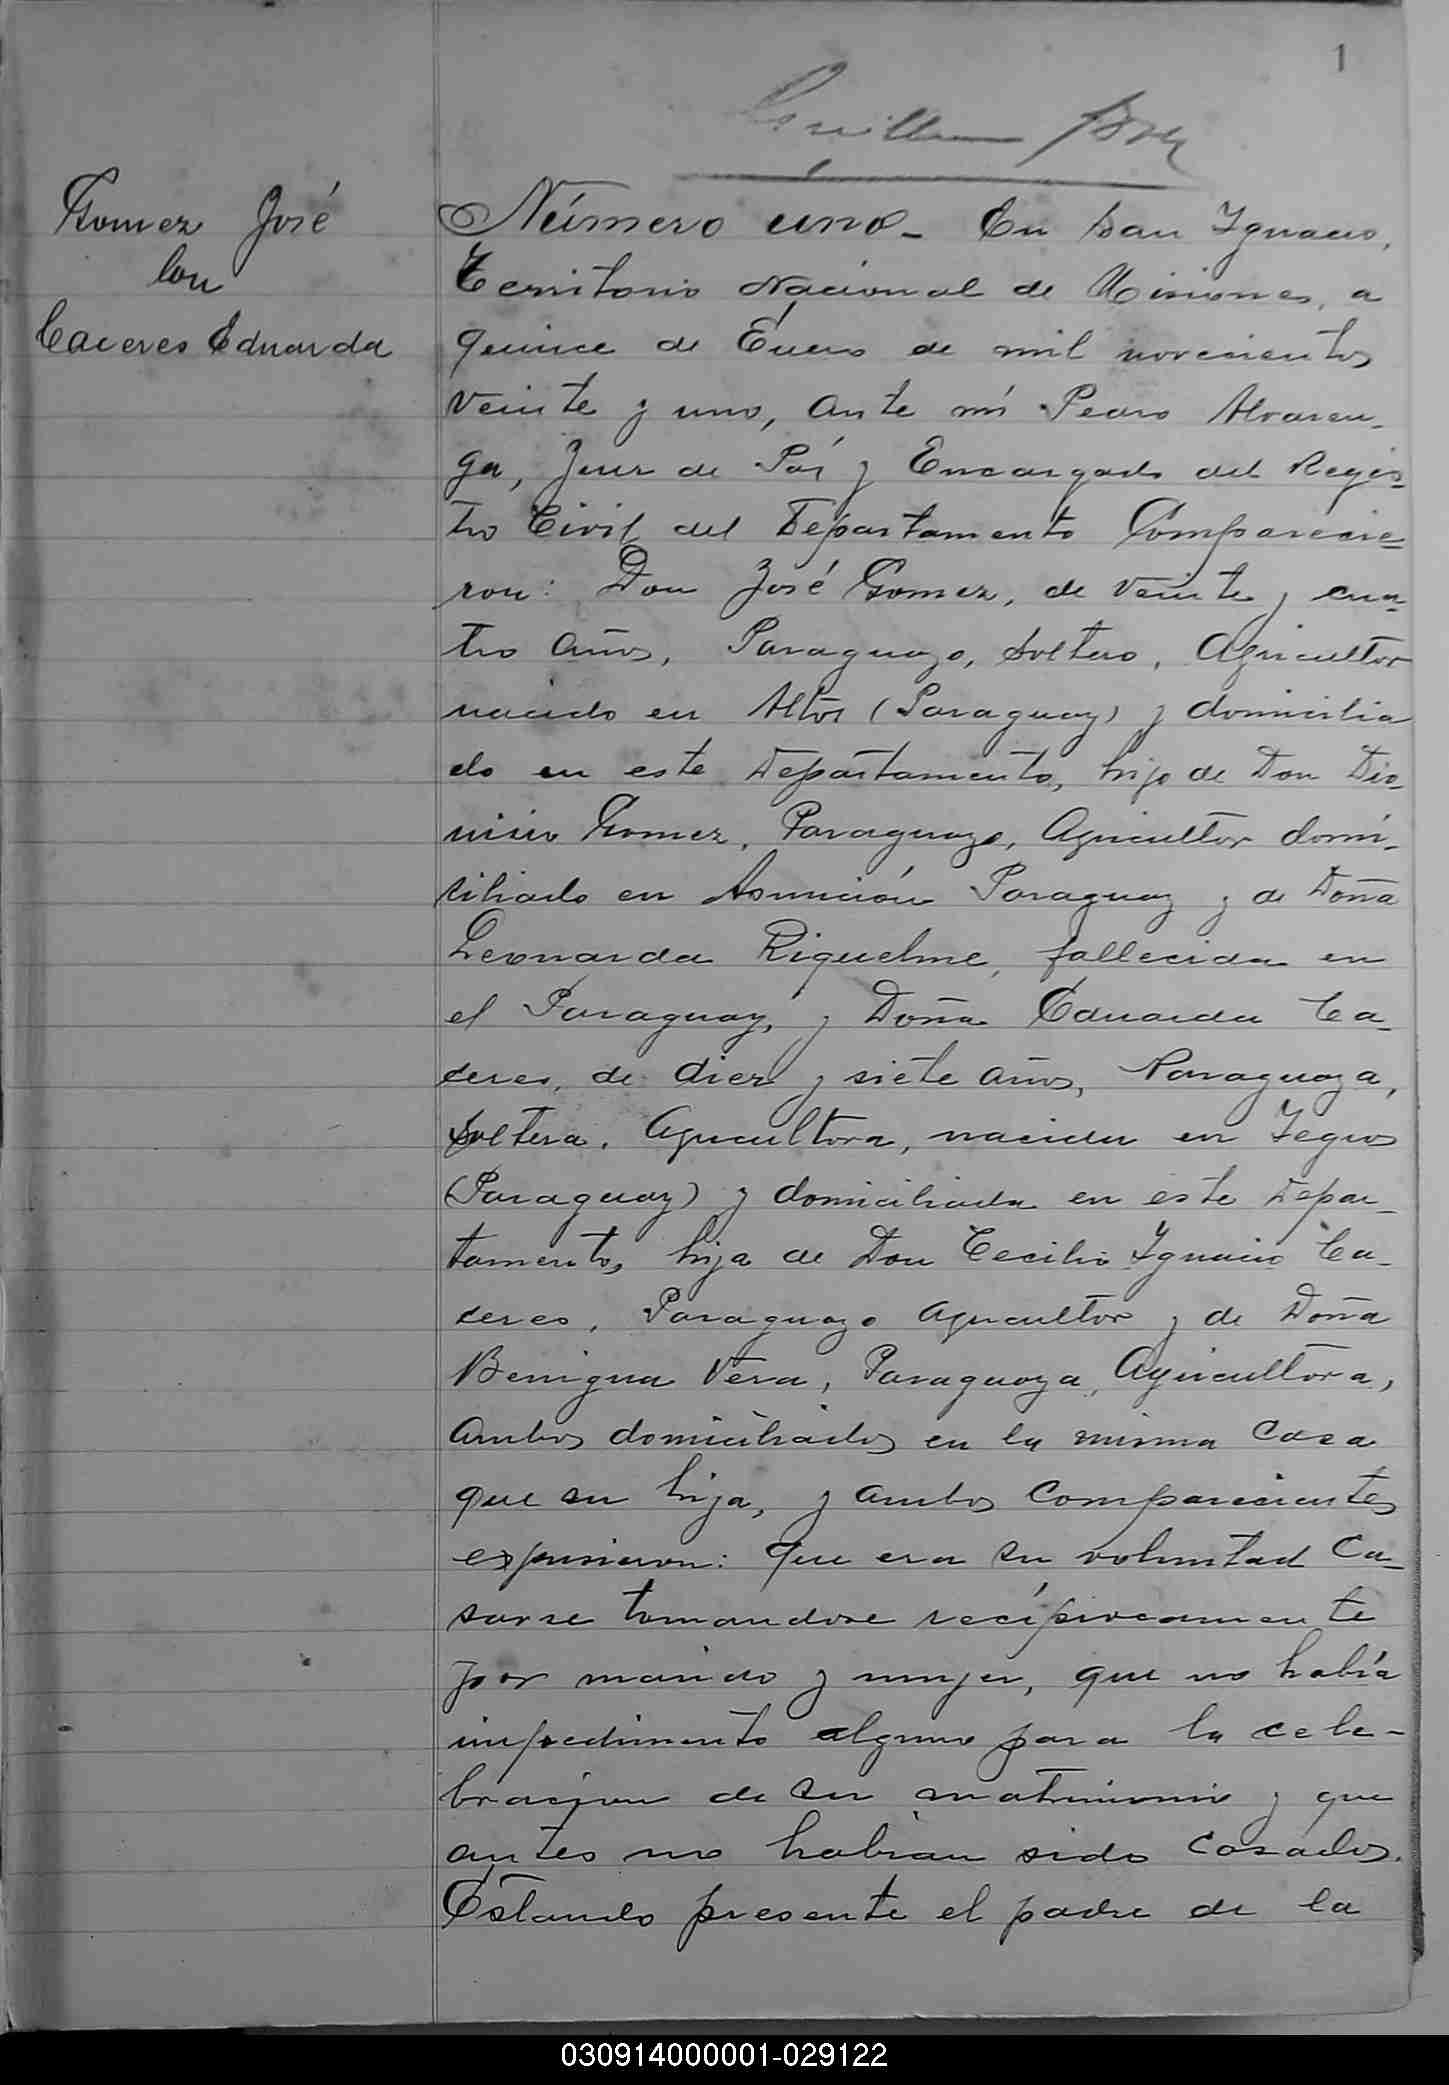 1
Gomez José
con
Caceres Eduarda
Número uno - En San Ignacio,
Territorio Nacional de Misiones, a
quince de Enero de mil novecientos
veinte y uno, ante mí Pedro Alvaren-
ga, Juez de Páz y Encargado del Regis-
tro Civil del Departamento Comparecie-
ron: Don José Gomez, de veinte y cua-
tro años, Paraguayo, soltero, Agricultor
nacido en Altos (Paraguay) y domicilia
do en este Departamento, hijo de Don Dio-
nicio Gomez, Paraguayo, Agricultor domi-
ciliado en Asunción Paraguay y de Doña
Leonarda Riquelme, fallecida en
el Paraguay, y Doña Eduarda Ca-
ceres, de diez y siete años, Paraguaya,
soltera, Agricultora, nacida en Yegros
(Paraguay) y domiciliada en este Depar-
tamento, hija de Don Cecilio Ignacio Ca-
ceres, Paraguayo Agricultor y de Doña
Benigna Vera, Paraguaya, Agricultora,
ambos domiciliados en la misma casa
que su hija, y ambos comparecientes
expusieron: que era su voluntad ca-
sarse tomandose recíprocamente
por marido y mujer, que no había
impedimento alguno para la cele-
bracion de su matrimonio y que
antes no habian sido casados.
Estando presente el padre de la
030914000001-029122